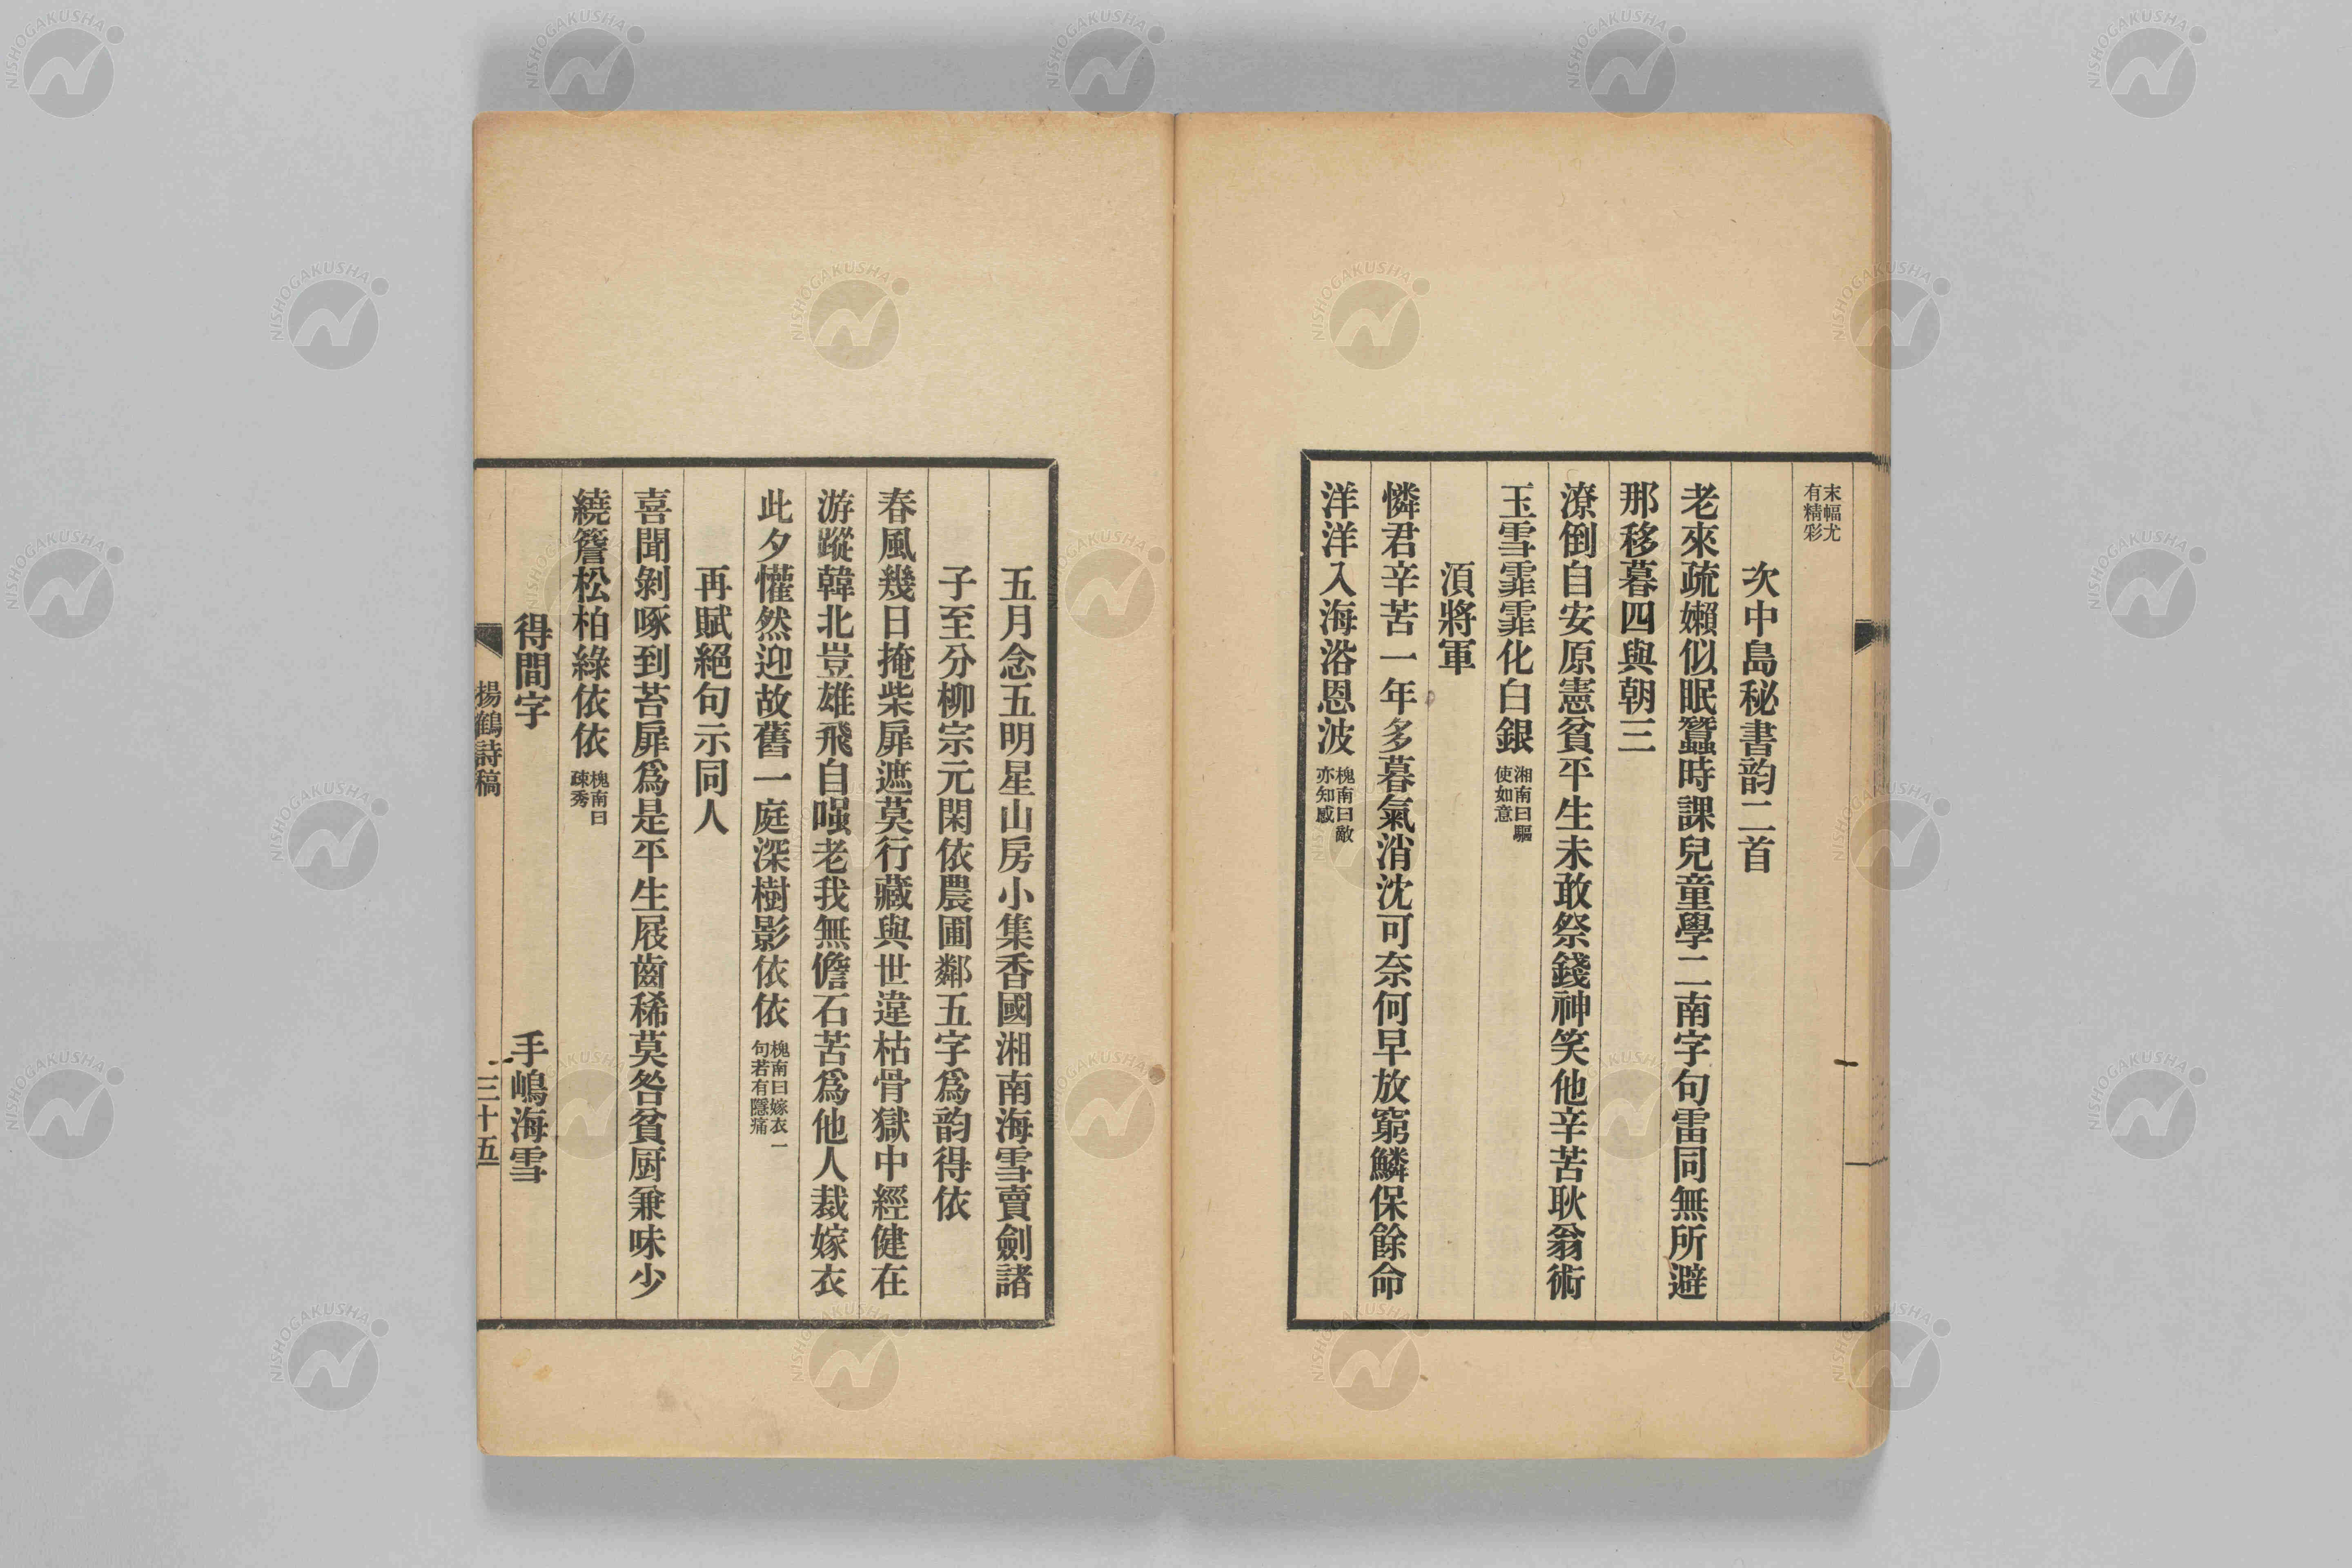 末幅尤
有精彩
次中島秘書韵二首
老來疏嬾似眠蠶時課兒童學二南字句雷同無所避
那移暮四與朝三
潦倒自安原憲貧平生未敢祭錢神笑他辛苦耿翁術
玉雪霏霏化白銀 湘南曰驅
使如意
湏將軍
憐君辛苦一年多暮氣消沈可奈何早放窮鱗保餘命
洋洋入海浴恩波 槐南曰敵
亦知感
五月念五明星山房小集香國湘南海雪賣劍諸
子至分柳宗元閑依農圃鄰五字爲韵得依
春風幾日掩柴扉遮莫行藏與世違枯骨獄中經健在
游蹤韓北豈雄飛自嗤老我無儋石苦爲他人裁嫁衣
此夕懽然迎故舊一庭深樹影依依 槐南曰嫁衣一
句若有隱痛
再賦絕句示同人
喜聞剝啄到苔扉爲是平生屐齒稀莫咎貧厨兼味少
繞簷松柏綠依依 槐南曰
疎秀
得間字 手嶋海雪
揚鶴詩稿
三十五
NISHOGAKUSHA